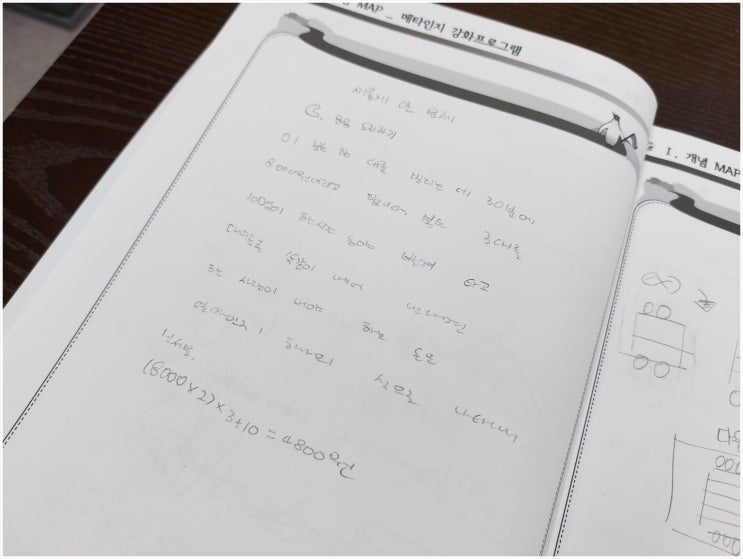 MAP _ 메타인지 강화프로그램
새롭게 안 문제
이 보트 한 대를 빌리는 데 30분에
8000원이라고 합니다. 보트 3대를
10명이 한 시간 동안 빌려 타고
대여료를 똑같이 나누어 낸다면
한 사람이 내야 하는 돈은
얼마인지 하나의 식으로 나타내
(8000×2)×3÷10=4800
I. 개념 MAP
다음